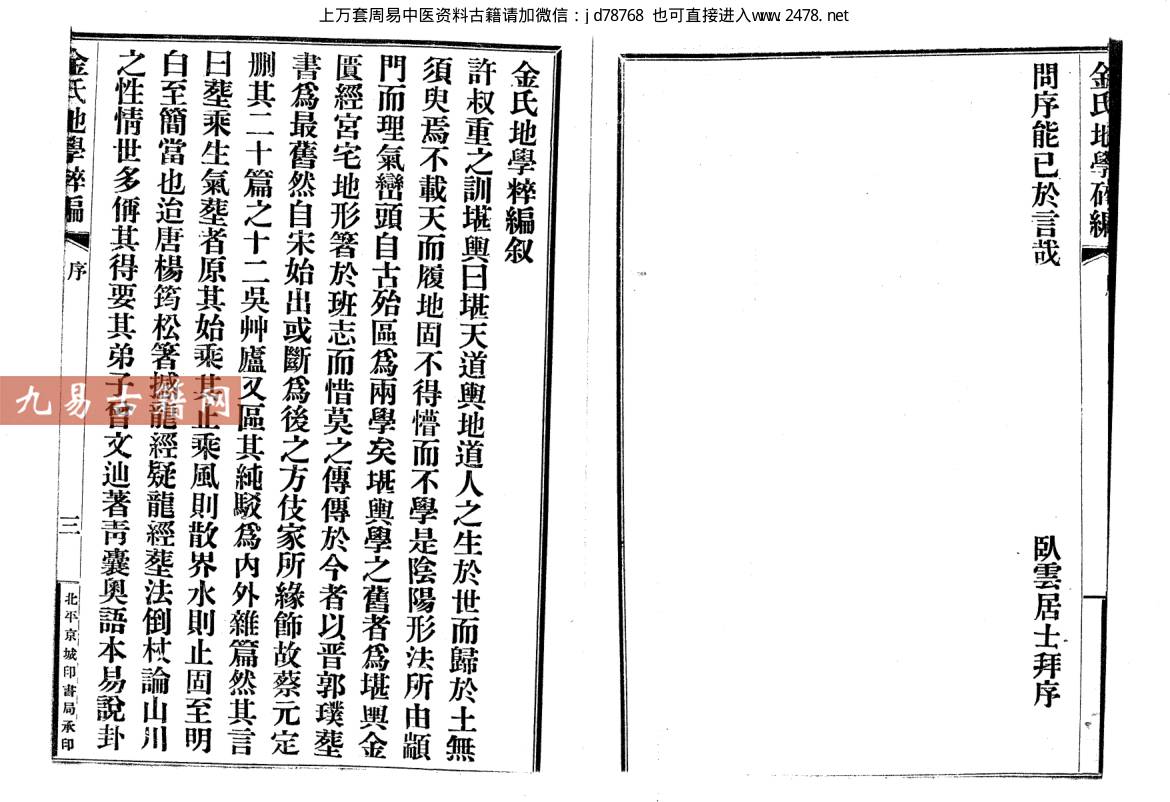 上万套周易中医资料古籍请加微信：jd78768 也可直接进入www.2478.net
金氏地學粹編
問序能已於言哉
臥雲居士拜序
金氏地學粹編叙
許叔重之訓堪輿曰堪天道輿地道人之生於世而歸於土無
須臾焉不載天而履地固不得懵而不學是陰陽形法所由顓
門而理氣巒頭自古殆區爲兩學矣堪輿學之舊者爲堪輿金
匱經宮宅地形箸於班志而惜莫之傳傳於今者以晋郭璞塟
書爲最舊然自宋始出或斷爲後之方伎家所緣飾故蔡元定
删其二十篇之十二吳艸廬又區其純駁爲內外雜篇然其言
曰塟乘生氣塟者原其始乘其止乘風則散界水則止固至明
白至簡當也迨唐楊筠松箸撼龍經疑龍經塟法倒杖論山川
之性情世多偁其得要其弟子曾文辿著靑囊奥語本易說卦
金氏地學粹編
序
三
北平京城印書局承印
九易古籍网